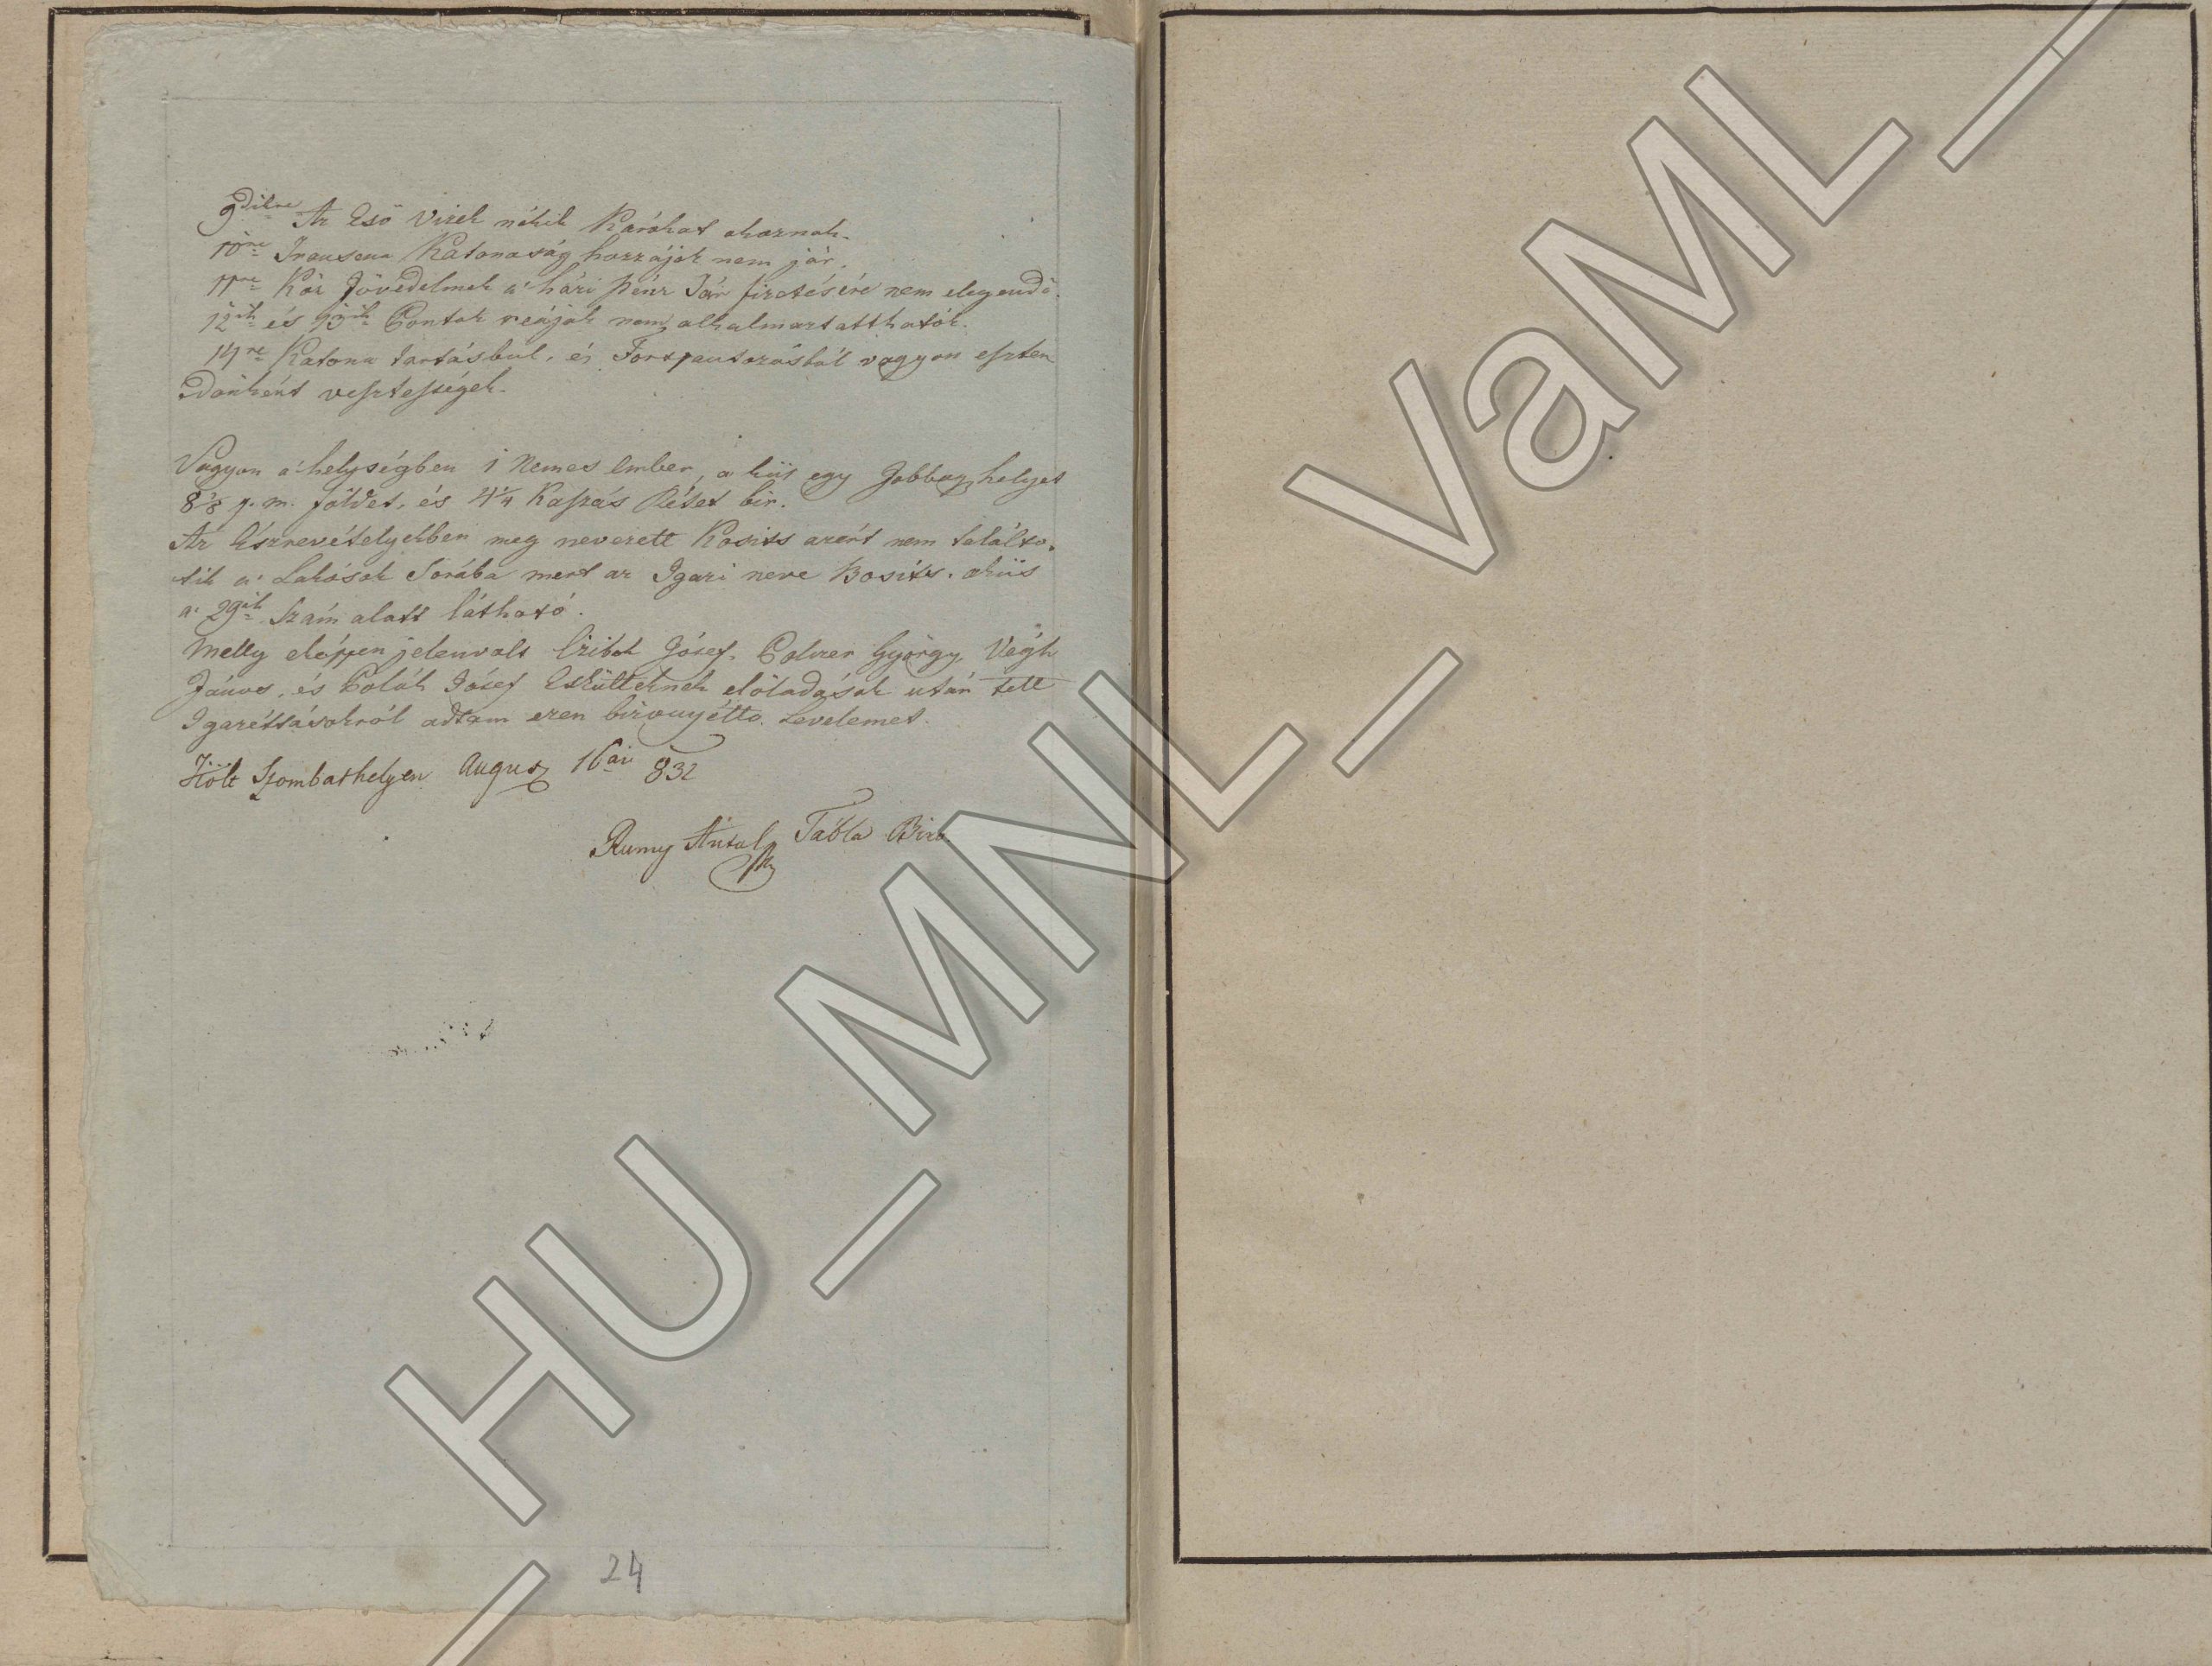 9dikre Az Eső Vizek nékik Károkat okoznak.
10re Transena Katonaság hozzájok nem jár.
11re Köz Jövedelmek a' házi pénz Tár fizetésére nem elegendő.
12ik és 13ik Pontok reájok nem alkalmaztatthatók.
14re Katona tartásbul, és Forspantozásbúl vagyon eszten
dönként vesztességek.
Vagyon a' helységben 1 Nemes Ember, a kiis egy Jobbagy helyet
8 1/8 p. m. földet, és 4 1/4 Kaszás Rétet bir.
Az Észrevételyekben meg nevezett Kosits azért nem találta-
tik a' Lakósok Sorába mert az Igazi neve Bosits. akiis
a' 29ik Szám alatt látható.
Melly eképpen jelenvolt Czibok Jósef, Polczer György, Végh
János, és Polák Jósef Eskütteknek előladások után tett
Igazéttásokról adtam ezen bizonyétto Levelemet.
Költ Szombathelyen August 16án 832
Rumy Antal mk Tábla Biro.
24
HU_MNL_VaML_